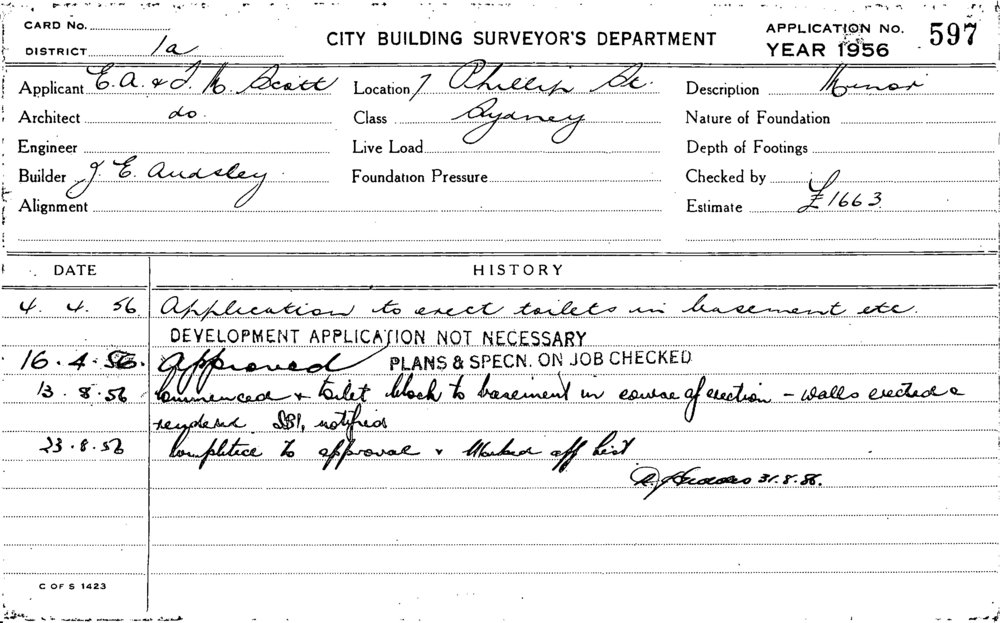 CARD No.
DISTRICT 1a
CITY BUILDING SURVEYOR'S DEPARTMENT
APPLICATION No. 597
YEAR 1956
Applicant E. A. & I. M. Scott Location 7 Phillip St. Description Minor
Architect do Class Sydney Nature of Foundation
Engineer Live Load Depth of Footings
Builder J. E. Audsley Foundation Pressure Checked by
Alignment Estimate £1663
DATE HISTORY
4. 4. 56 Application to erect toilets in basement etc.
DEVELOPMENT APPLICATION NOT NECESSARY
16.4.56. Approved PLANS & SPECN. ON JOB CHECKED
13.8.56 Commenced & toilet block to basement in course of erection - walls erected &
rendered notified
23.8.56 Completed to approval & Marked off list
31.8.56.
C OF S 1423